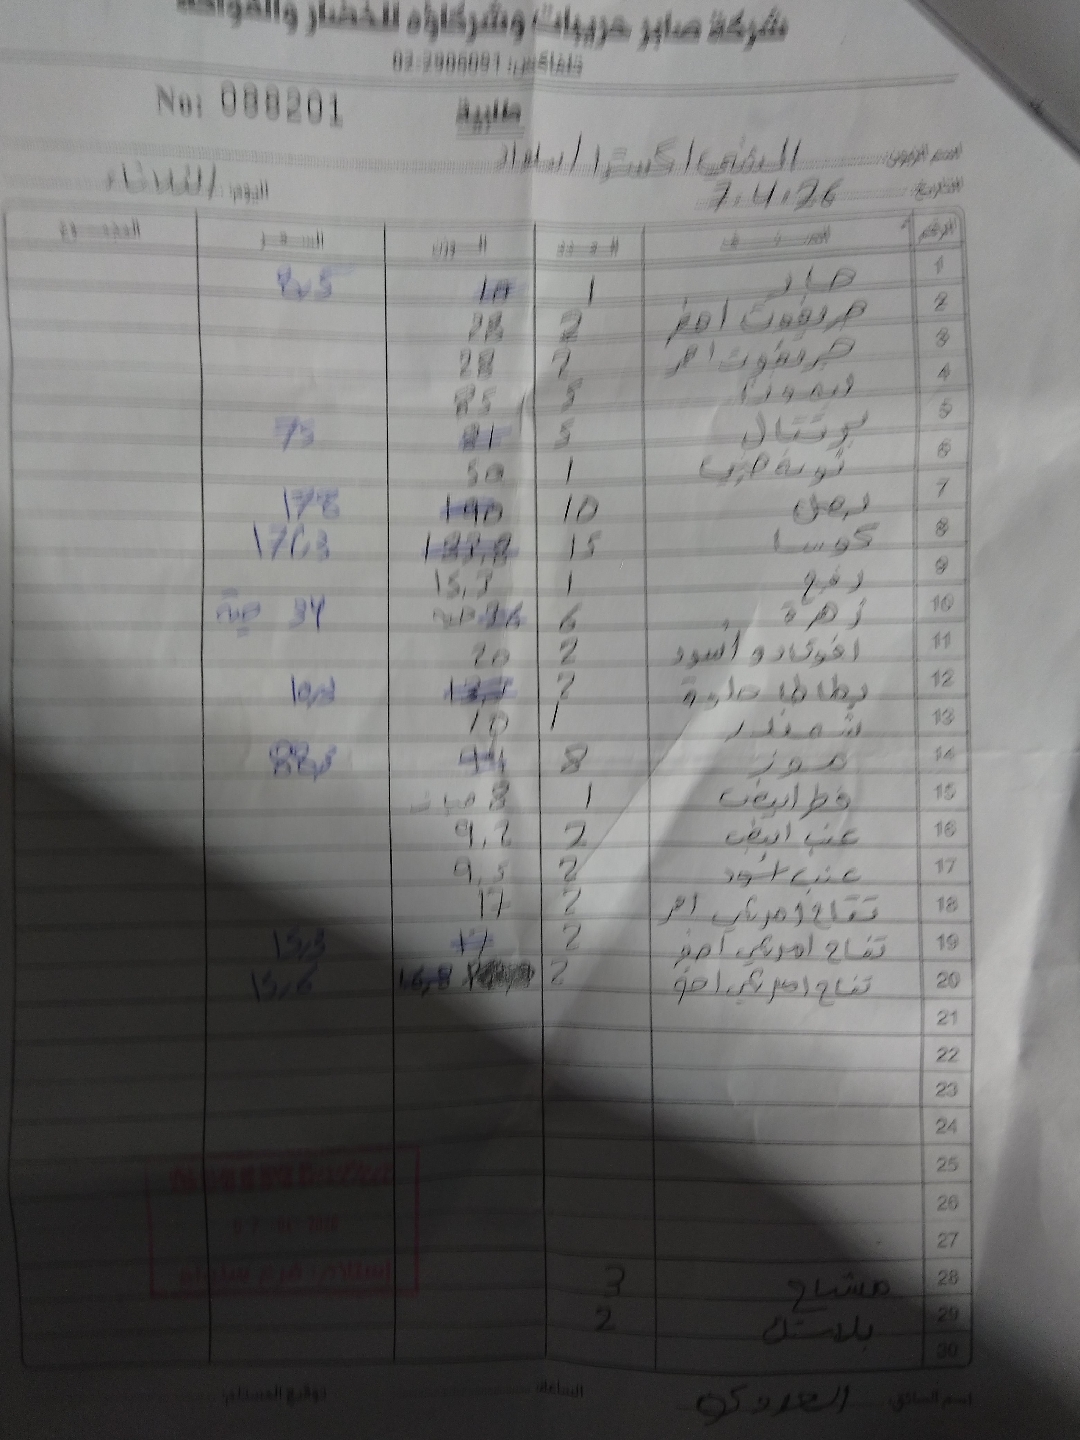 شركة صابر عريبات وشركاؤه للخضار والفواكه
تلفاكس: 02-2906091
No: 088201 طلبية
اسم الزبون: اكسترا / سلواد
اليوم: الثلاثاء التاريخ: 7.4.26
الرقم الصنف العدد الوزن السعر المجموع
1 1 10 8,5
2 2 28
3 2 28
4 ليمون 5 85
5 برتقال 5 81 75
6 1 50
7 بصل 10 190 178
8 كوسا 15 183,8 176,3
9 1 15,3
10 زهرة 6 36 حبة 34 حبة
11 افوكادو أسود 2 20
12 بطاطا حلوة 2
13 شمندر 1 10
14 موز 8 94 88,5
15 فطر ابيض 1 8
16 عنب ابيض 2 9,2
17 عنب اسود 2 9,5
18 تفاح امريكي احمر 2 17
19 تفاح امريكي اصفر 2 17 15,3
20 تفاح امريكي اخضر 2 16,8 15,6
21
22
23
24
25
26
27
28 مشتاح 3
29 بلاستك 2
30
اسم السائق: الساعة: توقيع المستلم: